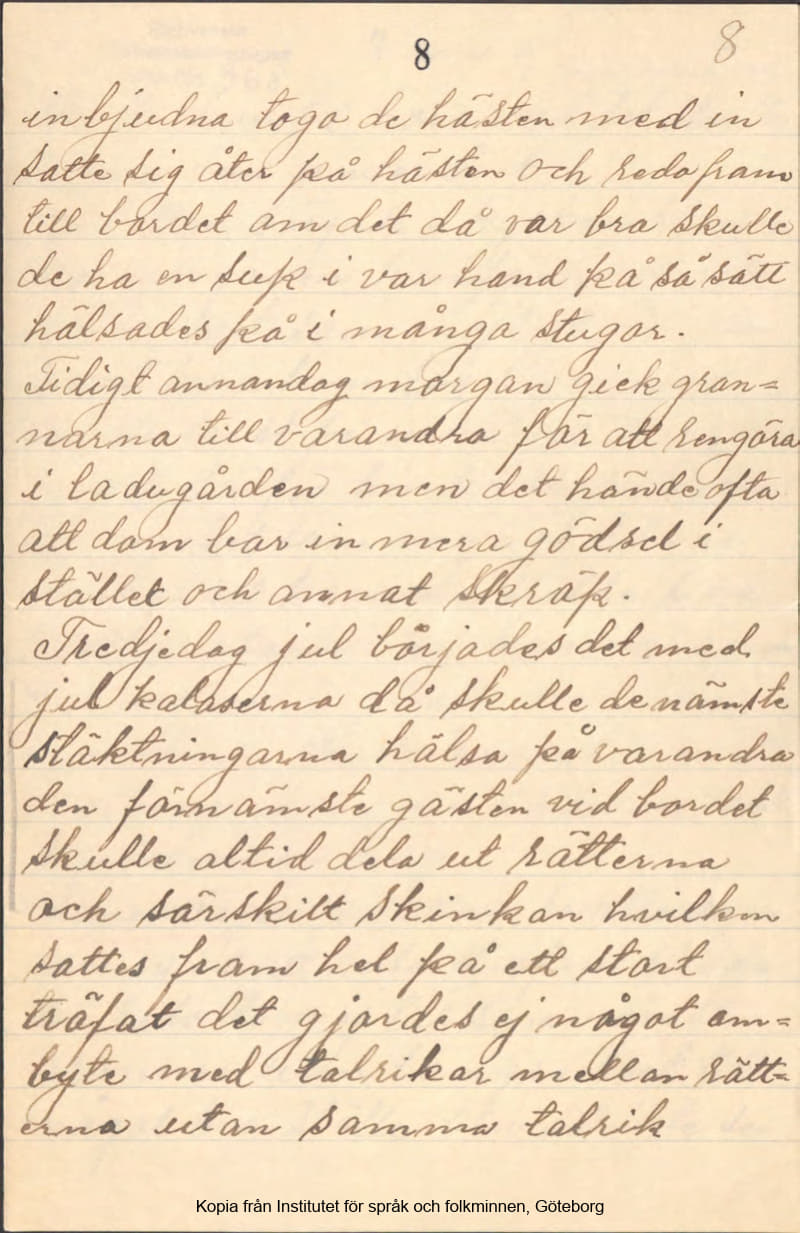 8 8
inbjudna togo de hästen med in
satte sig åter på hästen och redo fram
till bordet om det då var bra skulle
de ha en sup i var hand på så sätt
hälsades på i många stugor.
Tidigt annandag morgan gick gran=
narna till varandra för att rengöra
i ladugården men det hände ofta
att dom bar in mera gödsel i
stället och annat skräp.
Tredjedag jul börjades det med
jul kalaserna då skulle de nämste
släktningarna hälsa på varandra
den förnämste gästen vid bordet
skulle altid dela ut rätterna
och särskilt skinkan hvilken
sattes fram hel på ett stort
träfat det gjordes ej något om=
byte med talrikar mellan rätt=
erna utan samma talrik
Kopia från Institutet för språk och folkminnen, Göteborg